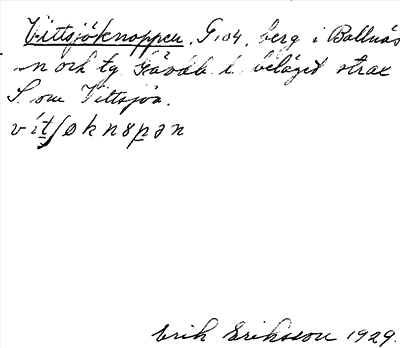 Vittsjöknoppen, G.104, berg i Ballnäs
n och tg Gävleb. l. beläget strax
S. om Vittsjön.
vítʃøknɞpən
Erik Eriksson 1929.